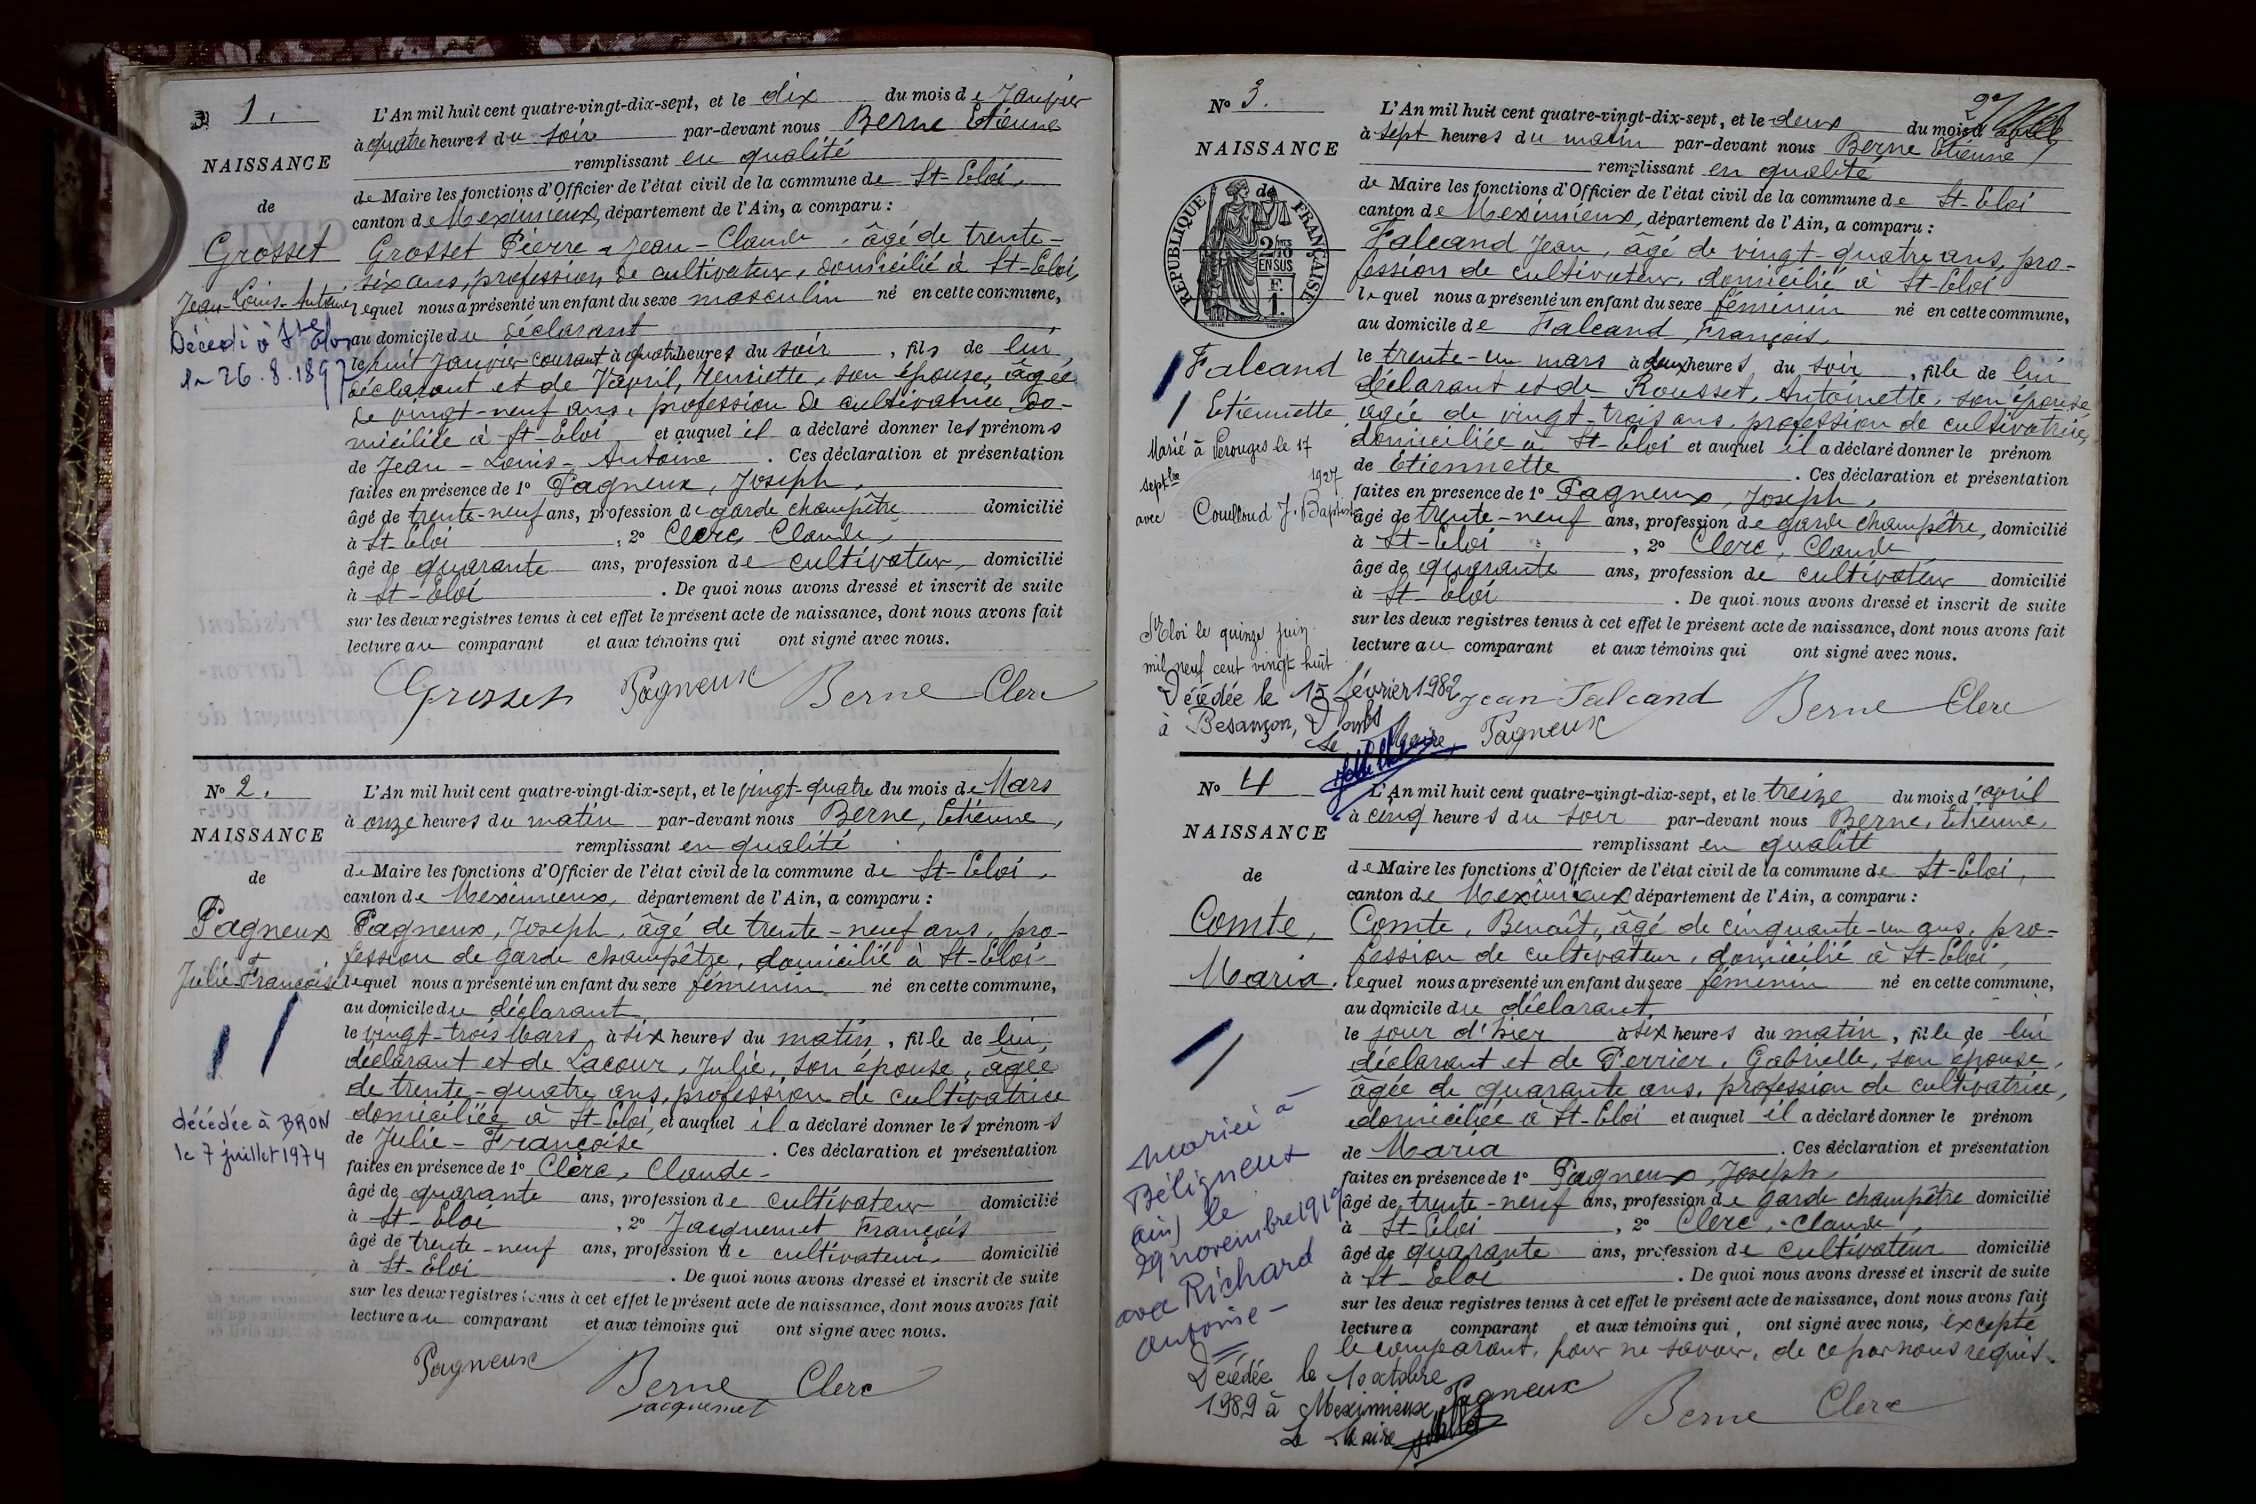 1.
NAISSANCE
de
Grosset
Jean-Louis-Antoine
Décédé à Ste Eloi
le 26.8.1897
L'An mil huit cent quatre-vingt-dix-sept, et le dix du mois de Janvier
à quatre heures du soir par-devant nous Berne Etienne
remplissant en qualité
de Maire les fonctions d'Officier de l'état civil de la commune de St-Eloi,
canton de Meximieux, département de l'Ain, a comparu :
Grosset Pierre-Jean-Claude, âgé de trente-
six ans, profession de cultivateur, domicilié à St-Eloi,
lequel nous a présenté un enfant du sexe masculin né en cette commune,
au domicile du déclarant
le huit Janvier courant à quatre heures du soir, fils de lui
déclarant et de Henriette, son épouse, âgée
de vingt-neuf ans, profession de cultivatrice, do-
miciliée à St-Eloi et auquel il a déclaré donner les prénoms
de Jean-Louis-Antoine. Ces déclaration et présentation
faites en présence de 1° Pagneux, Joseph,
âgé de trente-neuf ans, profession de garde champêtre domicilié
à St-Eloi, 2° Clerc, Claude,
âgé de quarante ans, profession de cultivateur, domicilié
à St-Eloi. De quoi nous avons dressé et inscrit de suite
sur les deux registres tenus à cet effet le présent acte de naissance, dont nous avons fait
lecture au comparant et aux témoins qui ont signé avec nous.
Grosset Pagneux Berne Clerc
N° 2.
NAISSANCE
de
Pagneux
Julie-Françoise
décédée à BRON
le 7 juillet 1974
L'An mil huit cent quatre-vingt-dix-sept, et le vingt-quatre du mois de Mars
à onze heures du matin par-devant nous Berne, Etienne,
remplissant en qualité
de Maire les fonctions d'Officier de l'état civil de la commune de St-Eloi,
canton de Meximieux, département de l'Ain, a comparu :
Pagneux, Joseph, âgé de trente-neuf ans, pro-
fession de garde champêtre, domicilié à St-Eloi
lequel nous a présenté un enfant du sexe féminin né en cette commune,
au domicile du déclarant
le vingt-trois Mars à six heures du matin, fille de lui,
déclarant et de Lacour, Julie, son épouse, âgée
de trente-quatre ans, profession de cultivatrice
domiciliée à St-Eloi, et auquel il a déclaré donner les prénoms
de Julie-Françoise. Ces déclaration et présentation
faites en présence de 1° Clerc, Claude
âgé de quarante ans, profession de cultivateur domicilié
à St-Eloi, 2° Jacquemet François
âgé de trente-neuf ans, profession de cultivateur, domicilié
à St-Eloi. De quoi nous avons dressé et inscrit de suite
sur les deux registres tenus à cet effet le présent acte de naissance, dont nous avons fait
lecture au comparant et aux témoins qui ont signé avec nous.
Pagneux Berne Clerc
Jacquemet
N° 3.
NAISSANCE
de
RÉPUBLIQUE FRANÇAISE
2/10
EN SUS
F.
1.
Falcand
Etiennette
Marié à Perouges le 17
septbre 1927
avec Coulloud J. Baptiste
St Eloi le quinze juin
mil neuf cent vingt huit
Décédée le 15 février 1982
à Besançon, Doubs
Le Maire,
L'An mil huit cent quatre-vingt-dix-sept, et le deux du mois d'avril
à sept heures du matin par-devant nous Berne Etienne
remplissant en qualité
de Maire les fonctions d'Officier de l'état civil de la commune de St-Eloi
canton de Meximieux, département de l'Ain, a comparu :
Falcand Jean, âgé de vingt-quatre ans, pro-
fession de cultivateur, domicilié à St-Eloi
lequel nous a présenté un enfant du sexe féminin né en cette commune,
au domicile de Falcand, François,
le trente-un mars à deux heures du soir, fille de lui
déclarant et de Rousset, Antoinette, son épouse,
âgée de vingt-trois ans, profession de cultivatrice,
domiciliée à St-Eloi et auquel il a déclaré donner le prénom
de Etiennette. Ces déclaration et présentation
faites en présence de 1° Pagneux, Joseph,
âgé de trente-neuf ans, profession de garde champêtre, domicilié
à St-Eloi, 2° Clerc, Claude
âgé de quarante ans, profession de cultivateur domicilié
à St-Eloi. De quoi nous avons dressé et inscrit de suite
sur les deux registres tenus à cet effet le présent acte de naissance, dont nous avons fait
lecture au comparant et aux témoins qui ont signé avec nous.
Jean Falcand Berne Clerc
Pagneux
N° 4
NAISSANCE
de
Comte,
Maria.
mariée à
Béligneux
ain) le
29 novembre 1919
avec Richard
antoine
Décédée le 1 octobre
1989 à Meximieux
Le Maire
L'An mil huit cent quatre-vingt-dix-sept, et le treize du mois d'avril
à cinq heures du soir par-devant nous Berne, Etienne,
remplissant en qualité
de Maire les fonctions d'Officier de l'état civil de la commune de St-Eloi,
canton de Meximieux département de l'Ain, a comparu :
Comte, Benoît, âgé de cinquante-un ans, pro-
fession de cultivateur, domicilié à St-Eloi,
lequel nous a présenté un enfant du sexe féminin né en cette commune,
au domicile du déclarant
le jour d'hier à six heures du matin, fille de lui
déclarant et de Perrier, Gabrielle, son épouse,
âgée de quarante ans, profession de cultivatrice,
domiciliée à St-Eloi et auquel il a déclaré donner le prénom
de Maria. Ces déclaration et présentation
faites en présence de 1° Pagneux, Joseph,
âgé de trente-neuf ans, profession de garde champêtre domicilié
à St-Eloi, 2° Clerc, Claude,
âgé de quarante ans, profession de cultivateur domicilié
à St-Eloi. De quoi nous avons dressé et inscrit de suite
sur les deux registres tenus à cet effet le présent acte de naissance, dont nous avons fait
lecture a comparant et aux témoins qui, ont signé avec nous, excepté
le comparant, pour ne savoir, de ce par nous requis.
Pagneux Berne Clerc